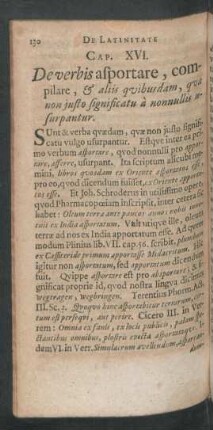 130 DE LATINITATE
CAP. XVI.
De verbis asportare, com-
pilare, & aliis qvibusdam, quæ
non justo significatu à nonnullis u-
surpantur.
SUnt & verba quædam, quæ non justo signifi-
catu vulgo usurpantur. Estque inter ea pri-
mo verbum asportare, quod nonnulli pro appor-
tare, afferre, usurpant. Ita scriptum alicubi me-
mini, libros quosdam ex Oriente asportatos esse,
pro eo, quod dicendum fuisset, ex Oriente apporta-
tos esse. Et Joh. Schroderus in utilissimo opere,
quod Pharmacopœiam inscripsit, inter cetera sic
habet: Oleum terræ ante paucos annos nobis
est ex India asportatum. Vult utique ille, oleum
terræ ad nos ex India apportatum esse. Ad quem
modum Plinius lib. VII. cap. 56. scribit, plumbum
ex Cassiteride primum apportasse Midacritum. Il-
ligitur non asportatum, sed apportatum dicendum
fuit. Qvippe asportare est pro absportare; &
significat proprie id, quod nostra lingua dicitur
wegtragen, wegbringen. Terentius Phorm. Act.
III. Sc. 2. Quoquo hinc asportabitur terrarum, cer-
tum est persequi, aut perire. Cicero III. in Ver-
rem: Omnia ex fanis, ex locis publicis, palam, spe-
ctantibus omnibus, plostris evecta asportataque. I-
dem VI. in Verr. Simulacrum avellendum, asportan-